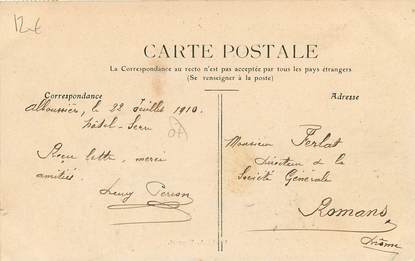 12€
CARTE POSTALE
La Correspondance au recto n'est pas acceptée par tous les pays étrangers
(Se renseigner à la poste)
Correspondance
Adresse
Alboussière, le 22 Juillet 1910.
Hôtel-Serre
07
Reçu lettre, merci
amitiés.
Perron
Monsieur Ferlat
Directeur de la
Société Générale
Romans
Drôme